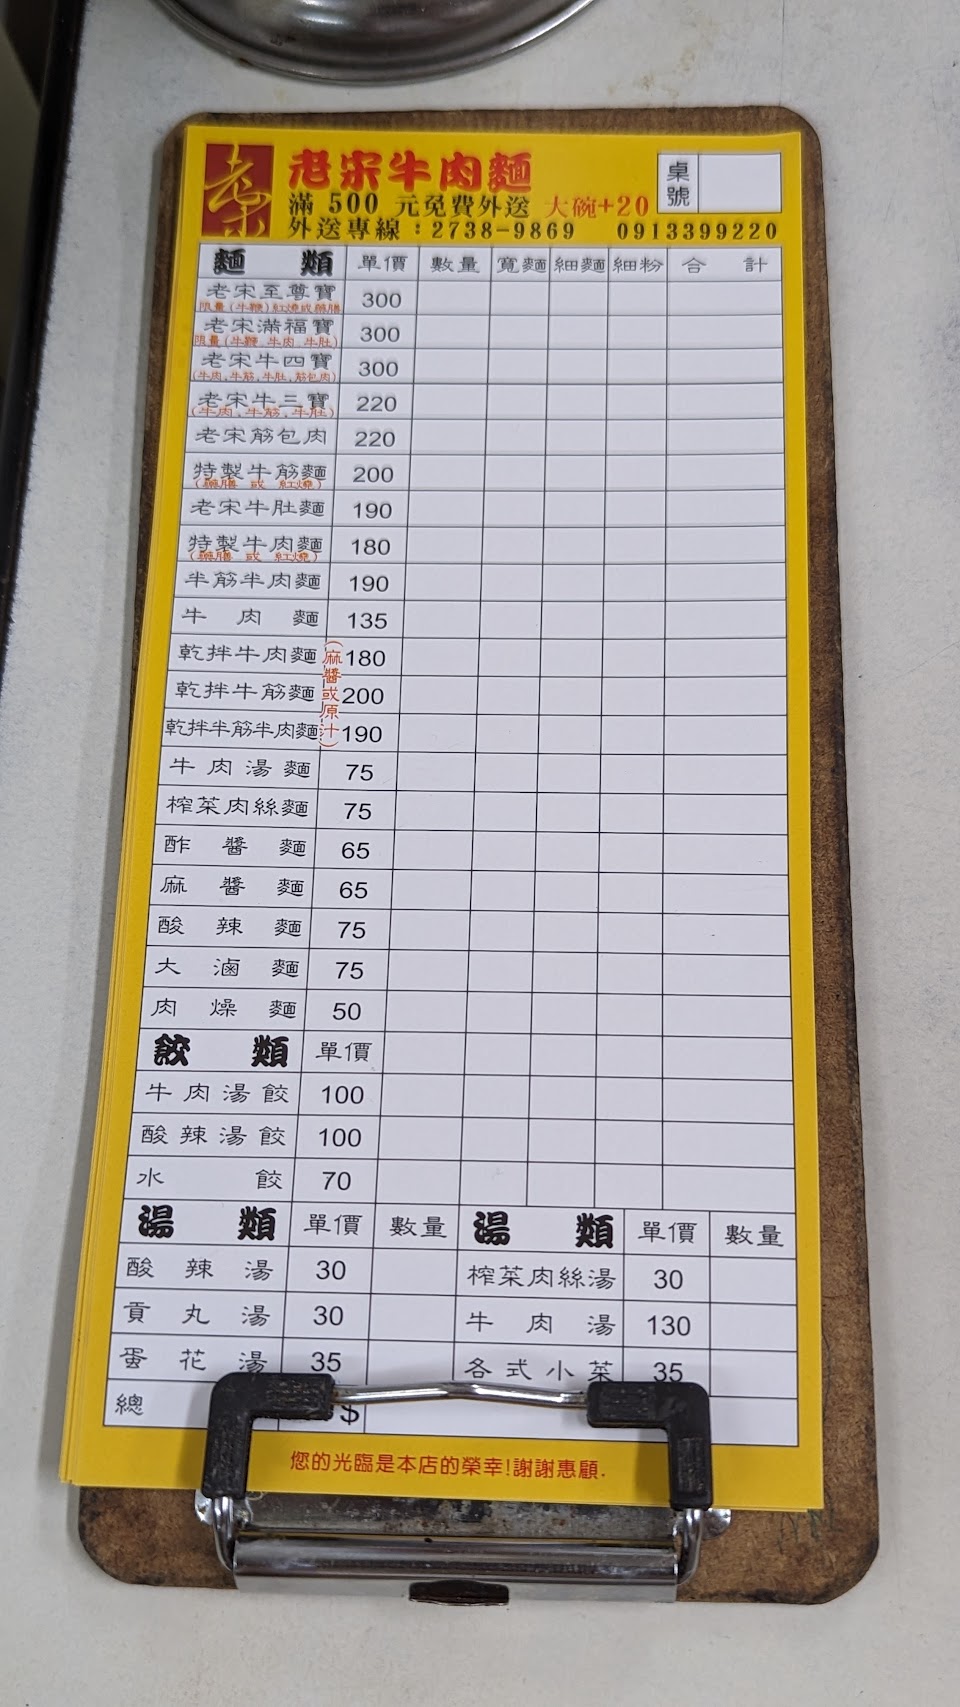 老宋
老宋牛肉麵
桌號
滿 500 元免費外送 大碗+20
外送專線：2738-9869 0913399220
麵類 單價 數量 寬麵 細麵 細粉 合計
老宋至尊寶 300
限量(牛鞭)紅燒或藥膳
老宋滿福寶 300
限量(牛鞭 牛肉 牛肚)
老宋牛四寶 300
(牛肉,牛筋,牛肚,筋包肉)
老宋牛三寶 220
(牛肉,牛筋,牛肚)
老宋筋包肉 220
特製牛筋麵 200
(藥膳 或 紅燒)
老宋牛肚麵 190
特製牛肉麵 180
(藥膳 或 紅燒)
半筋半肉麵 190
牛肉麵 135
乾拌牛肉麵 180
乾拌牛筋麵 200
乾拌半筋半肉麵 190
(麻醬或原汁)
牛肉湯麵 75
榨菜肉絲麵 75
酢醬麵 65
麻醬麵 65
酸辣麵 75
大滷麵 75
肉燥麵 50
餃類 單價
牛肉湯餃 100
酸辣湯餃 100
水餃 70
湯類 單價 數量 湯類 單價 數量
酸辣湯 30 榨菜肉絲湯 30
貢丸湯 30 牛肉湯 130
蛋花湯 35 各式小菜 35
總 $
您的光臨是本店的榮幸!謝謝惠顧.